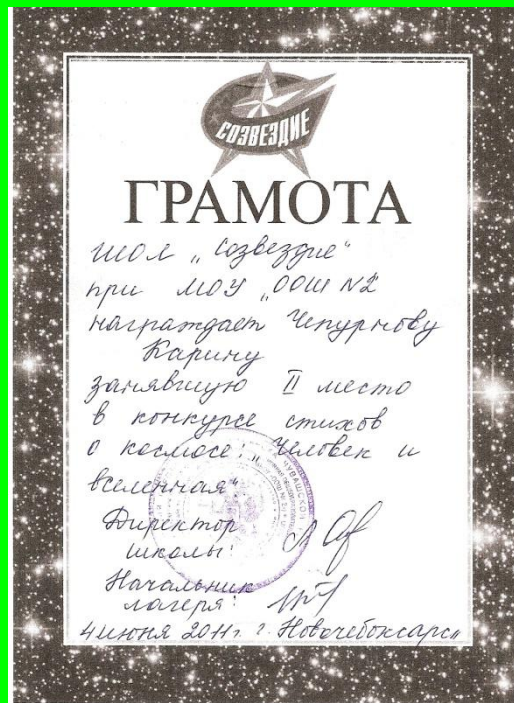 СОЗВЕЗДИЕ
ГРАМОТА
ШОЛ „Созвездие"
при МОУ „ООШ №2
награждает Чепурнову
Карину
занявшую II место
в конкурсе стихов
о космосе: „Человек и
вселенная"
Директор
школы:
Начальник
лагеря:
4 июня 2011г. г. Новочебоксарск
ЧУВАШСКОЙ